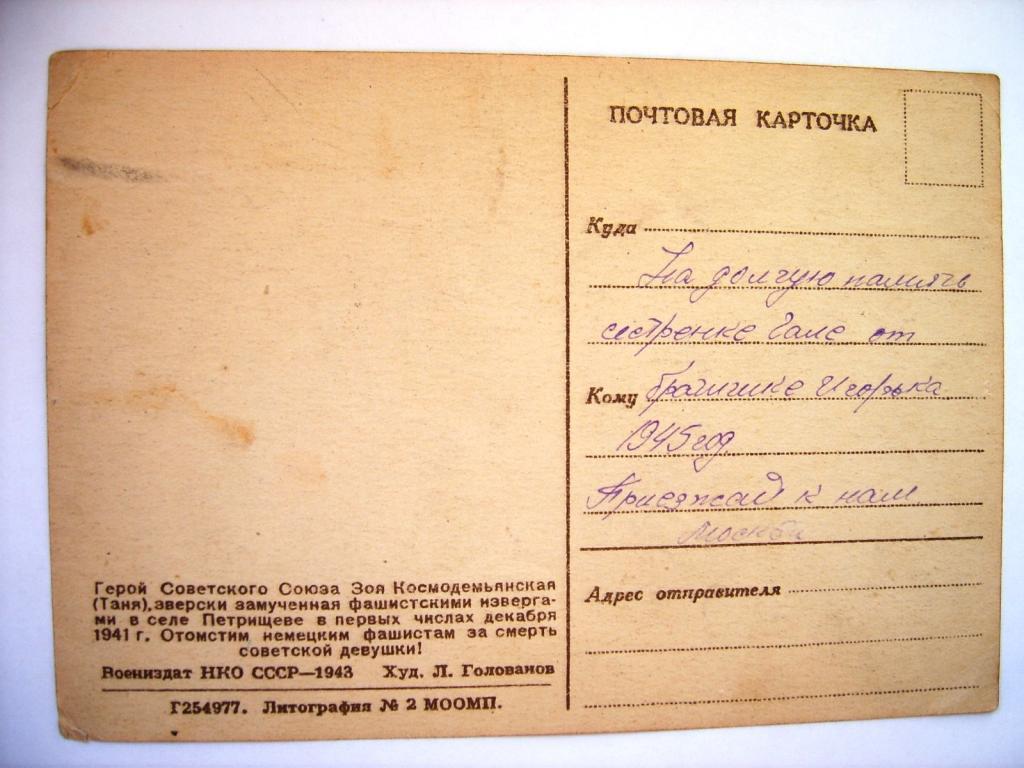 Герой Советского Союза Зоя Космодемьянская
(Таня), зверски замученная фашистскими изверга-
ми в селе Петрищеве в первых числах декабря
1941 г. Отомстим немецким фашистам за смерть
советской девушки!
Воениздат НКО СССР—1943 Худ. Л. Голованов
Г254977. Литография № 2 МООМП.
ПОЧТОВАЯ КАРТОЧКА
Куда
На долгую память
сестренке Гале от
Кому братишке Игорька
1945 год
Приезжай к нам
Москва
Адрес отправителя